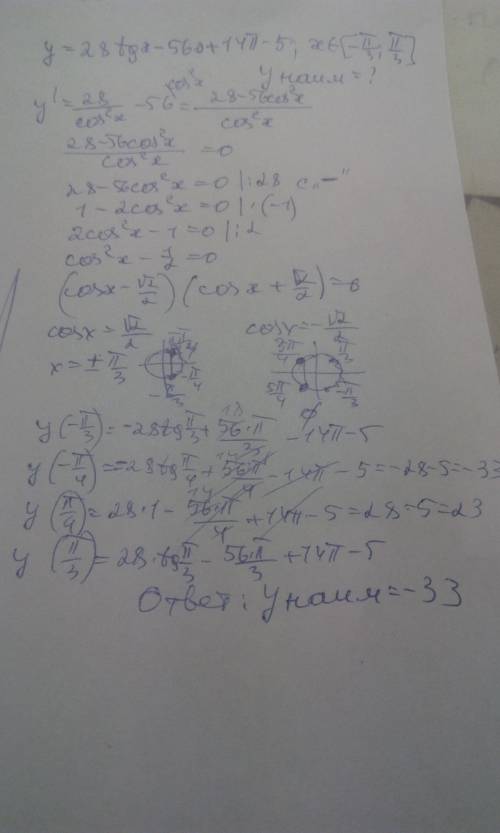 y = 28tgx - 56x + 14π - 5; x∈[-π/3; π/3]
y наим = ?
y' = 28/cos²x - 56 = (28 - 56cos²x)/cos²x
cos²x
(28 - 56cos²x)/cos²x = 0
28 - 56cos²x = 0 |:28 с „-“
1 - 2cos²x = 0 |·(-1)
2cos²x - 1 = 0 |:2
cos²x - 1/2 = 0
(cosx - √2/2)(cosx + √2/2) = 0
cosx = √2/2 cosx = -√2/2
x = ± π/3
π/4 -π/4 -π/3
3π/4 π/3 5π/4 -π/3
∅
y(-π/3) = -28tg π/3 + 56·π/3 - 14π - 5
y(-π/4) = -28tg π/4 + 56·π/4 - 14π - 5 = -28-5 = -33
y(π/4) = 28·1 - 56·π/4 + 14π - 5 = 28-5 = 23
y(π/3) = 28·tg π/3 - 56·π/3 + 14π - 5
Ответ: y наим = -33